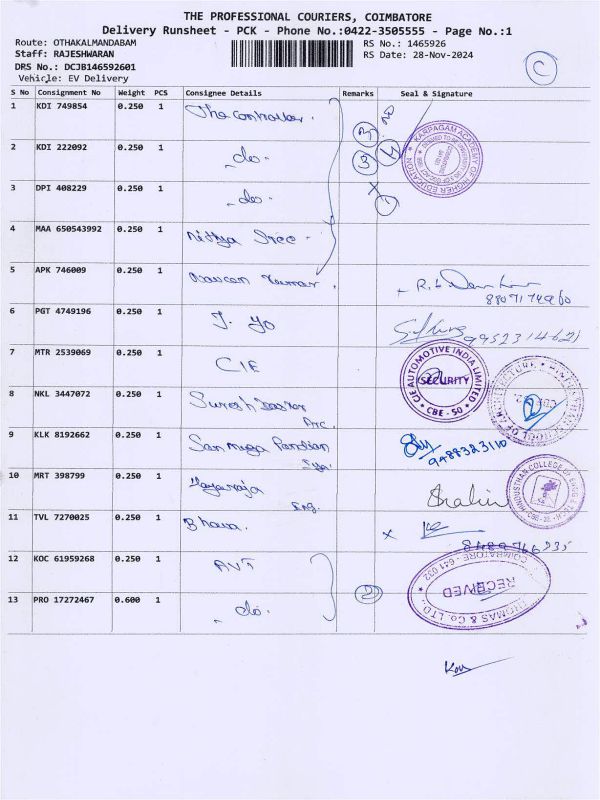 THE PROFESSIONAL COURIERS, COIMBATORE
Delivery Runsheet - PCK - Phone No.:0422-3505555 - Page No.:1
Route: OTHAKALMANDABAM
RS No.: 1465926
Staff: RAJESHWARAN
RS Date: 28-Nov-2024
DRS No.: DCJB146592601
Vehicle: EV Delivery
C
S No Consignment No Weight PCS Consignee Details Remarks Seal & Signature
1 KDI 749854 0.250 1 The controller.
2 KDI 222092 0.250 1 do. 3
3 DPI 408229 0.250 1 do.
KARPAGAM ACADEMY OF HIGHER EDUCATION
4 MAA 650543992 0.250 1 Nithya Sree.
5 APK 746009 0.250 1 Kumar.
6 PGT 4749196 0.250 1 J. Yo 9952314621
7 MTR 2539069 0.250 1 CIE
CIE AUTOMOTIVE INDIA LIMITED
SECURITY
CBE - 50
8 NKL 3447072 0.250 1 Suresh
9 KLK 8192662 0.250 1 Sanmuga Pandian
9488323110
10 MRT 398799 0.250 1
HINDUSTHAN COLLEGE OF ENGG
11 TVL 7270025 0.250 1 Bhava.
12 KOC 61959268 0.250 1 AVT
13 PRO 17272467 0.600 1 do. 2
COIMBATORE - 641 032
RECEIVED
THOMAS & Co. LTD.